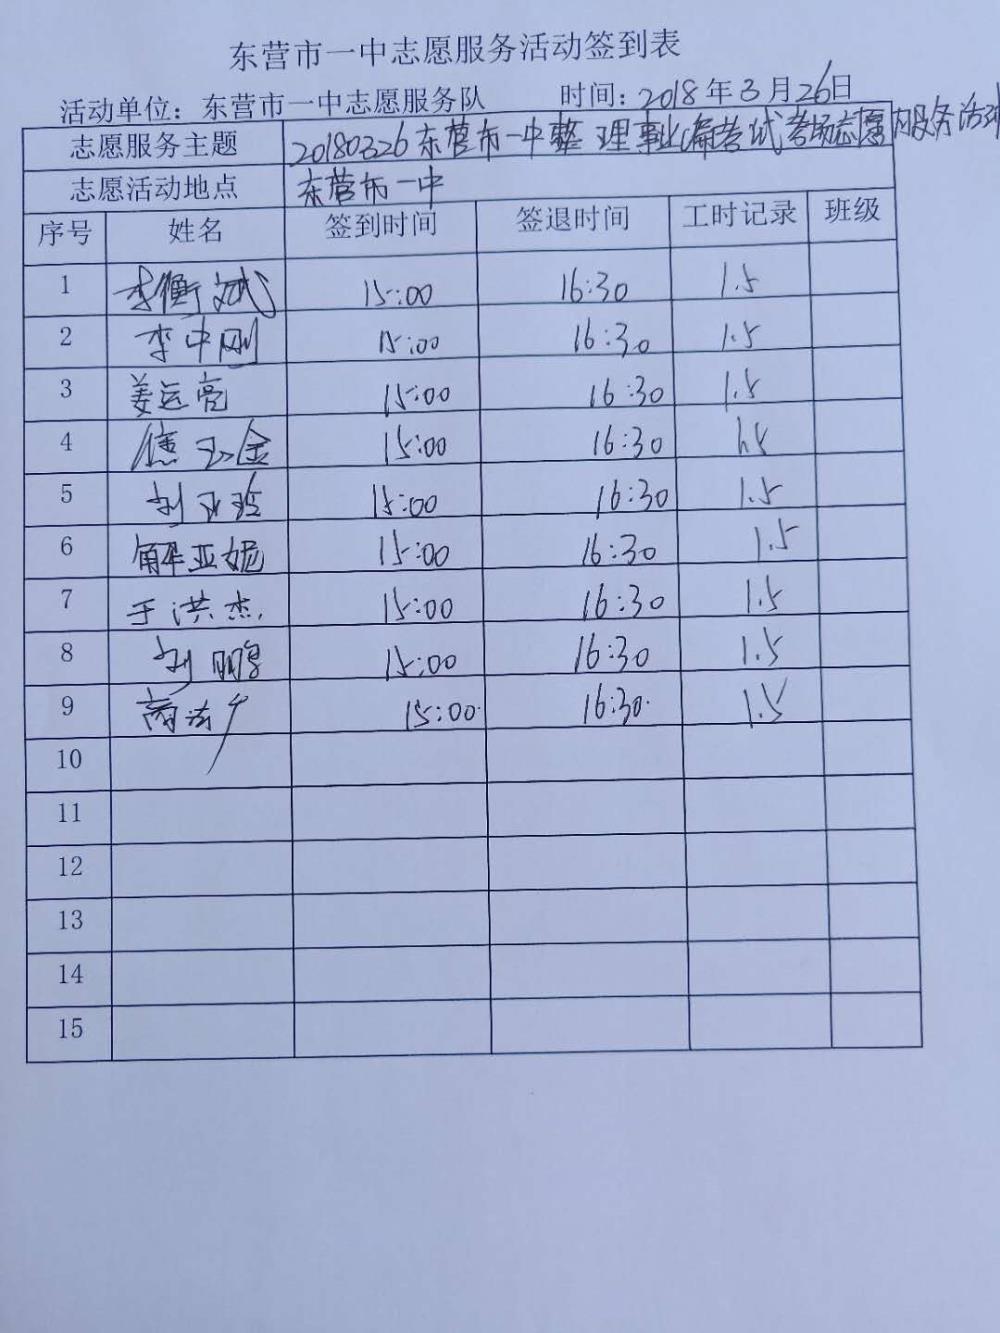 东营市一中志愿服务活动签到表
活动单位：东营市一中志愿服务队 时间：2018年3月26日
志愿服务主题 20180326东营市一中整理事业编考试考场志愿服务活动
志愿活动地点 东营市一中
序号 姓名 签到时间 签退时间 工时记录 班级
1 李衡斌 15:00 16:30 1.5
2 李中刚 15:00 16:30 1.5
3 姜运亮 15:00 16:30 1.5
4 焦玉金 15:00 16:30 1.5
5 刘亚玲 15:00 16:30 1.5
6 解亚妮 15:00 16:30 1.5
7 于洪杰 15:00 16:30 1.5
8 刘鹏 15:00 16:30 1.5
9 15:00 16:30 1.5
10
11
12
13
14
15